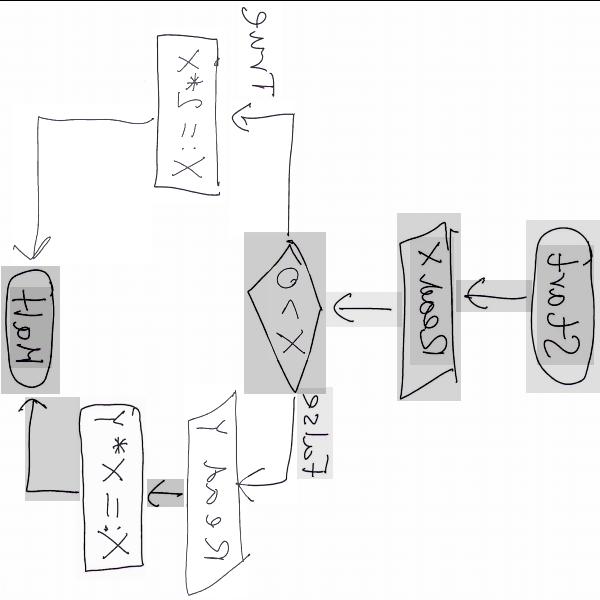 Start
Read X
X > 0
True
False
X := 2*X
Read Y
X := X*Y
Halt